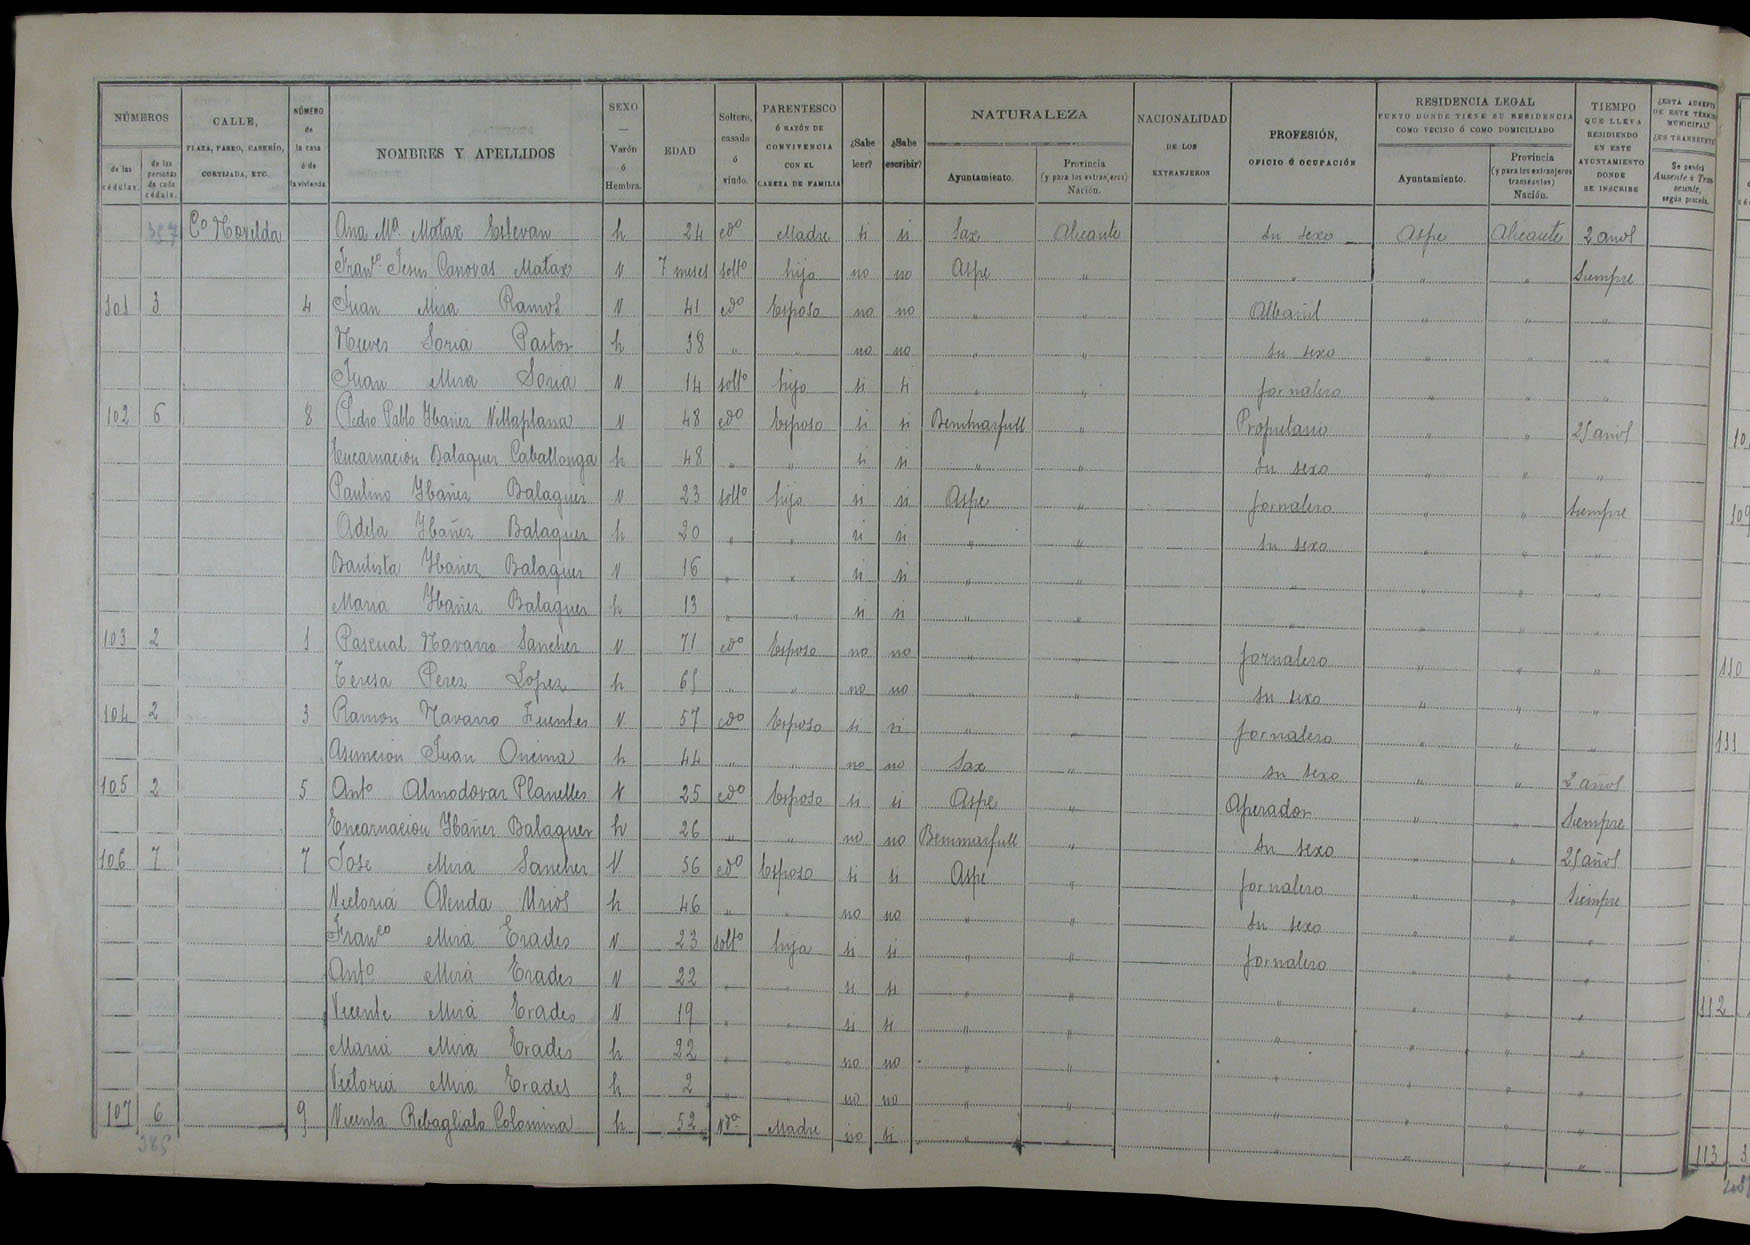 NÚMEROS
de las cédulas.
de las personas de cada cédula.
CALLE,
PLAZA, PASEO, CASERÍO,
CORTIJADA, ETC.
NÚMERO de la casa ó de la vivienda.
NOMBRES Y APELLIDOS
SEXO — Varón ó Hembra.
EDAD
Soltero, casado ó viudo.
PARENTESCO Ó RAZÓN DE CONVIVENCIA CON EL CABEZA DE FAMILIA
¿Sabe leer?
¿Sabe escribir?
NATURALEZA
Ayuntamiento.
Provincia (y para los extranjeros) Nación.
NACIONALIDAD DE LOS EXTRANJEROS
PROFESIÓN,
OFICIO Ó OCUPACIÓN
RESIDENCIA LEGAL
PUNTO DONDE TIENE SU RESIDENCIA COMO VECINO Ó COMO DOMICILIADO
Ayuntamiento.
Provincia (y para los extranjeros transeuntes) Nación.
TIEMPO QUE LLEVA RESIDIENDO EN ESTE AYUNTAMIENTO DONDE SE INSCRIBE
¿ESTÁ AUSENTE DE ESTE TÉRMINO MUNICIPAL?
¿ES TRANSEUNTE?
Se pondrá Ausente ó Transeunte, según proceda.
Cº Novelda Ana Mª Matax Estevan h 24 cdº Madre si si Sax Alicante Su sexo Aspe Alicante 2 años
Franº Jesus Canovas Matax V 7 meses soltº hijo no no Aspe " " " " Siempre
101 3 4 Juan Mira Ramos V 41 cdº Esposo no no " " Albañil " " "
Nieves Soria Pastor h 38 " " no no " " Su sexo " " "
Juan Mira Soria V 14 soltº hijo si si " " Jornalero " " "
102 6 8 Pedro Pablo Ybañez Villaplana V 48 cdº Esposo si si Benimarfull " Propietario " " 25 años
Encarnacion Balaguer Caballonga h 48 " " si si " " Su sexo " " "
Paulino Ybañez Balaguer V 23 soltº hijo si si Aspe " Jornalero " " Siempre
Adela Ybañez Balaguer h 20 " " si si " " Su sexo " " "
Bautista Ybañez Balaguer V 16 " " si si " " " " " "
Maria Ybañez Balaguer h 13 " " si si " " " " " "
103 2 1 Pascual Navarro Sanchez V 71 cdº Esposo no no " " Jornalero " " "
Teresa Perez Lopez h 65 " " no no " " Su sexo " " "
104 2 3 Ramon Navarro Fuentes V 57 cdº Esposo si si " " Jornalero " " "
Asuncion Juan Oncina h 44 " " no no Sax " Su sexo " " 2 años
105 2 5 Antº Almodovar Planelles V 25 cdº Esposo si si Aspe " Aperador " " Siempre
Encarnacion Ybañez Balaguer h 26 " " no no Benimarfull " Su sexo " " 25 años
106 7 7 Jose Mira Sanchez V 56 cdº Esposo si si Aspe " Jornalero " " Siempre
Victoria Alenda Uriol h 46 " " no no " " Su sexo " " "
Franco Mira Erades V 23 soltº hijo si si " " Jornalero " " "
Antº Mira Erades V 22 " " si si " " " " " "
Vicente Mira Erades V 19 " " si si " " " " " "
Maria Mira Erades h 22 " " no no " " " " " "
Victoria Mira Erades h 2 " " no no " " " " " "
107 6 9 Vicenta Rebagliato Colomina h 52 vdª Madre no si " " " " " "
385
110
111
112
113 3